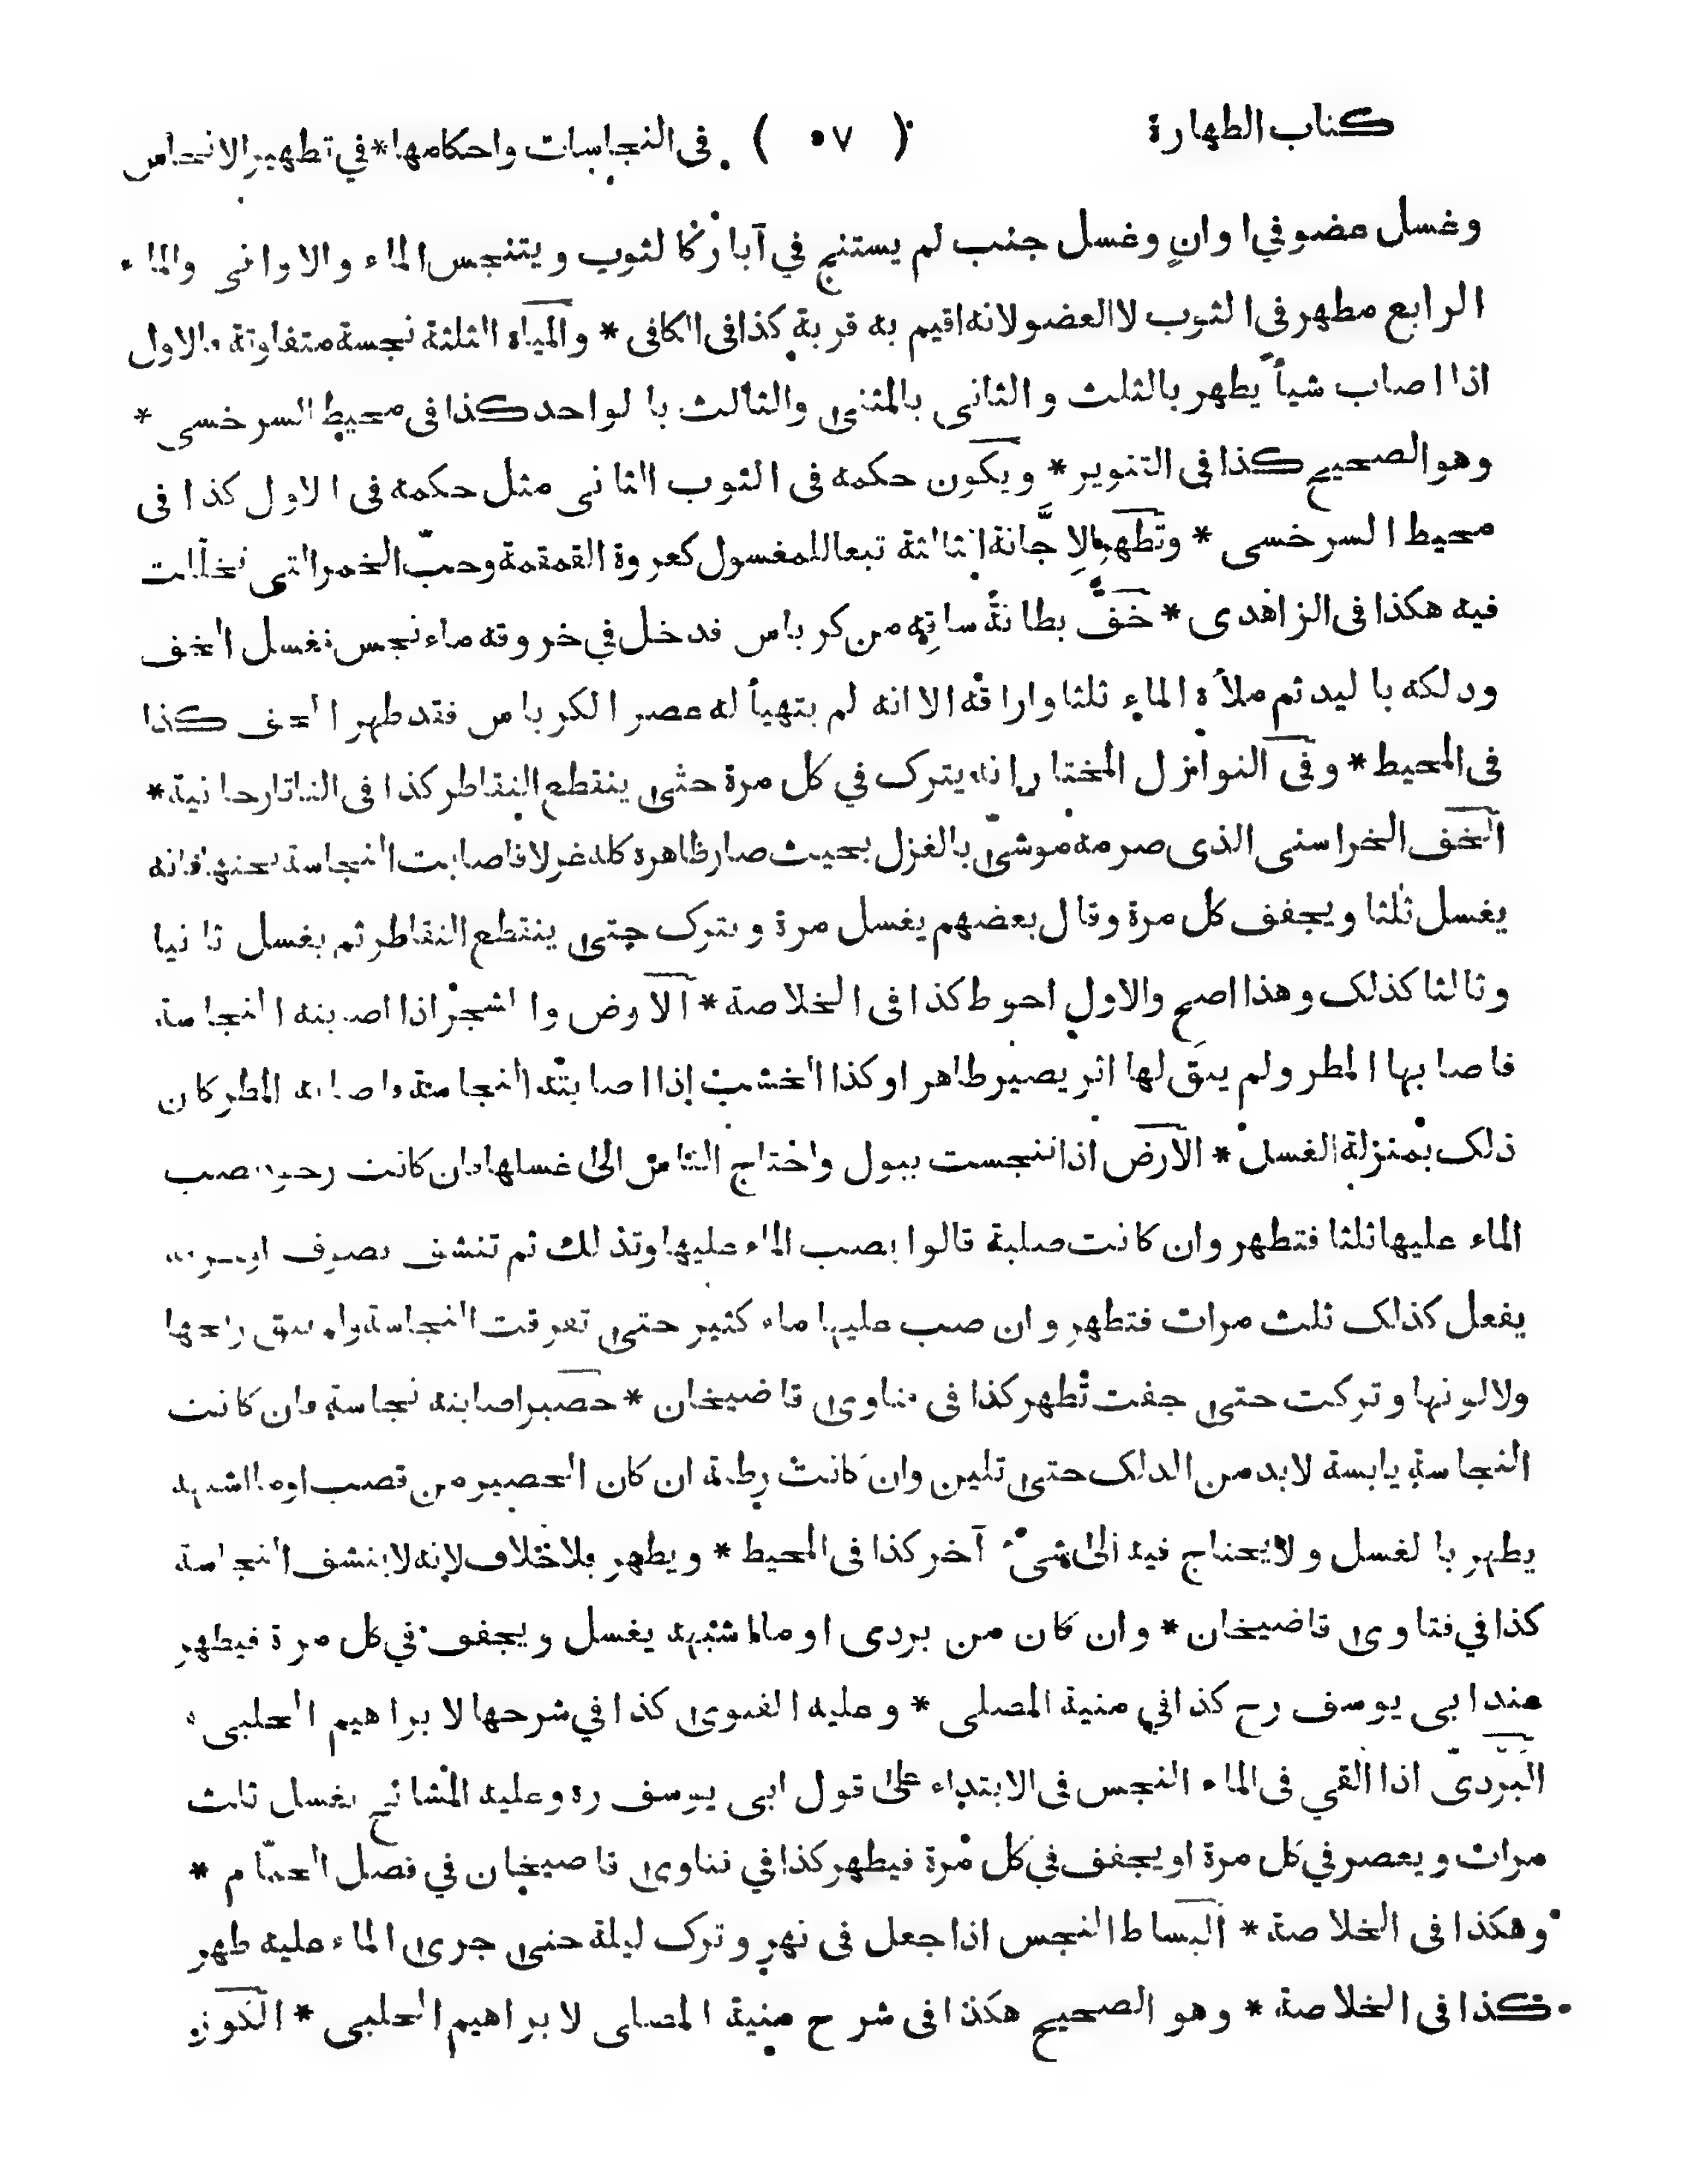 كتاب الطهارة ( ٥٧ ) فى النجاسات واحكامها * في تطهير الانجاس
وغسل عضو في اوانٍ وغسل جنب لم يستنج في آبار كالثوب ويتنجس الماء والاوانى والماء
الرابع مطهر فى الثوب لا العضو لانه اقيم به قربة كذا فى الكافى * والمياه الثلثة نجسة متفاوتة فالاول
اذا اصاب شيأ يطهر بالثلث والثانى بالمثنى والثالث بالواحد كذا فى محيط السرخسى *
وهو الصحيح كذا فى التنوير * ويكون حكمه فى الثوب الثانى مثل حكمه فى الاول كذا فى
محيط السرخسى * وتطهر الاِجَّانة الثالثة تبعا للمغسول كعروة القمقمة وحبّ الخمر التى تخللت
فيه هكذا فى الزاهدى * خفّ بطانة ساقه من كرباس فدخل في خروقه ماء نجس فغسل الخف
ودلكه باليد ثم ملأه الماء ثلثا واراقه الا انه لم يتهيأ له عصر الكرباس فقد طهر الخف كذا
فى المحيط * وفى النوازل المختار انه يترك في كل مرة حتى ينقطع التقاطر كذا فى التاتارخانية *
الخف الخراسنى الذى صرمه موشىّ بالغزل بحيث صار ظاهره كله غزلا فاصابت النجاسة تحتها فانه
يغسل ثلثا ويجفف كل مرة وقال بعضهم يغسل مرة ويترك حتى ينقطع التقاطر ثم يغسل ثانيا
وثالثا كذلك وهذا اصح والاول احوط كذا فى الخلاصة * الارض والشجر اذا اصابته النجاسة
فاصابها المطر ولم يبق لها اثر يصير طاهرا وكذا الخشب إذا اصابته النجاسة واصابه المطر كان
ذلك بمنزلة الغسل * الارض اذا تنجست ببول واحتاج الناس الى غسلها فان كانت رخوة صب
الماء عليها ثلثا فتطهر وان كانت صلبة قالوا يصب الماء عليها وتدلك ثم تنشف بصوف او خرقة
يفعل كذلك ثلث مرات فتطهر وان صب عليها ماء كثير حتى تفرقت النجاسة ولم يبق ريحها
ولا لونها وتركت حتى جفت تطهر كذا فى فتاوى قاضيخان * حصير اصابته نجاسة فان كانت
النجاسة يابسة لا بد من الدلك حتى تلين وان كانت رطبة ان كان الحصير من قصب او ما اشبهه
يطهر بالغسل ولا يحتاج فيه الى شىء آخر كذا فى المحيط * ويطهر بلا خلاف لانه لا ينشف النجاسة
كذا في فتاوى قاضيخان * وان كان من بردى او ما اشبهه يغسل ويجفف في كل مرة فيطهر
عند ابى يوسف رح كذا في منية المصلى * وعليه الفتوى كذا في شرحها لابراهيم الحلبى *
البردىّ اذا القي فى الماء النجس فى الابتداء على قول ابى يوسف ره وعليه المشائخ يغسل ثلث
مرات ويعصر في كل مرة او يجفف في كل مرة فيطهر كذا في فتاوى قاضيخان في فصل الحمّام *
وهكذا فى الخلاصة * البساط النجس اذا جعل فى نهر وترك ليلة حتى جرى الماء عليه طهر
كذا فى الخلاصة * وهو الصحيح هكذا فى شرح منية المصلى لابراهيم الحلبى * الكوز